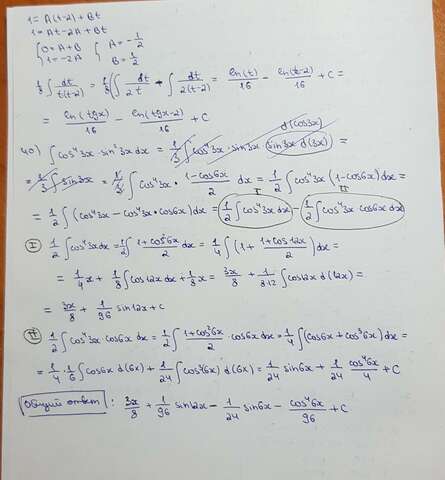 1 = A(t-2) + Bt
1 = At - 2A + Bt
{ 0 = A + B { A = -1/2
{ 1 = -2A { B = 1/2
1/8 ∫ dt/(t(t-2)) = 1/8 (∫ dt/2t - ∫ dt/(2(t-2)) = ln(t)/16 - ln(t-2)/16 + C =
= ln(tgx)/16 - ln(tgx-2)/16 + C
d(cos3x)
40) ∫ cos⁴3x · sin²3x dx = 1/3 ∫ cos⁴3x · sin3x (sin3x d(3x)) =
= 1/3 ∫ sin3x = 1/3 ∫ cos⁴3x · (1-cos6x)/2 dx = 1/2 ∫ cos⁴3x (1-cos6x) dx =
I II
= 1/2 ∫ (cos⁴3x - cos⁴3x · cos6x) dx = 1/2 ∫ cos⁴3x dx - 1/2 ∫ cos⁴3x cos6x dx
I 1/2 ∫ cos⁴3x dx = 1/2 ∫ (1+cos²6x)/2 dx = 1/4 ∫ (1 + (1+cos12x)/2) dx =
= 1/4 x + 1/8 ∫ cos12x dx + 1/8 x = 3x/8 + 1/(8·12) ∫ cos12x d(12x) =
= 3x/8 + 1/96 sin12x + C
II 1/2 ∫ cos⁴3x cos6x dx = 1/2 ∫ (1+cos²6x)/2 · cos6x dx = 1/4 ∫ (cos6x + cos³6x) dx =
= 1/4 · 1/6 ∫ cos6x d(6x) + 1/24 ∫ cos³(6x) d(6x) = 1/24 sin6x + 1/24 cos⁴6x/4 + C
Общий ответ : 3x/8 + 1/96 sin12x - 1/24 sin6x - cos⁴6x/96 + C